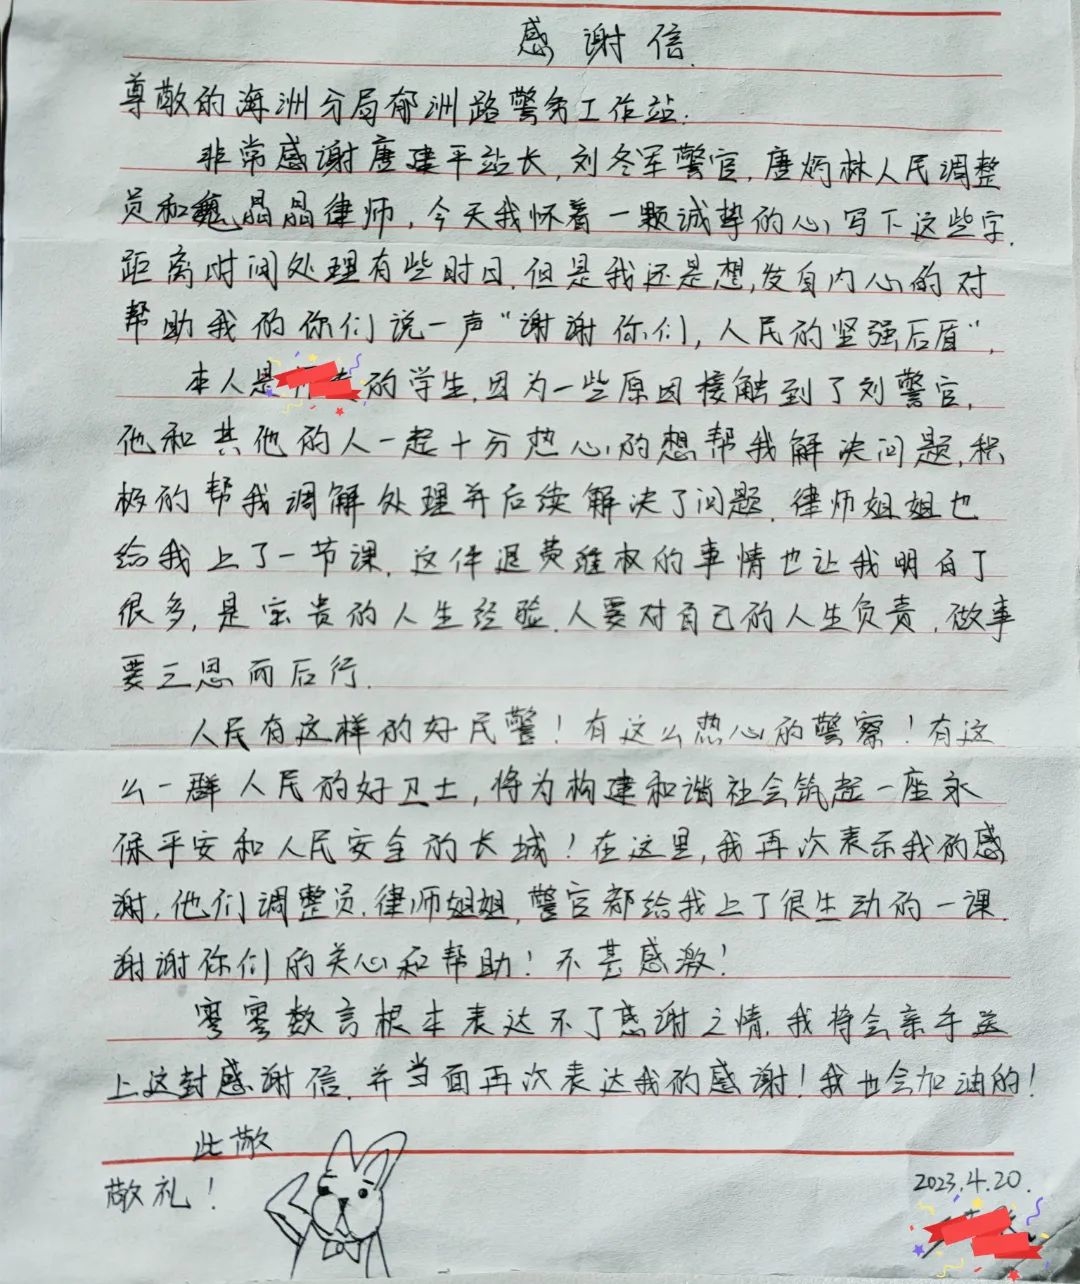 感谢信.
尊敬的海洲分局郁洲路警务工作站:
非常感谢唐建平站长,刘冬军警官,唐炳林人民调整
员和魏晶晶律师,今天我怀着一颗诚挚的心写下这些字.
距离时间处理有些时日.但是我还是想,发自内心的对
帮助我的你们说一声“谢谢你们,人民的坚强后盾”,
本人是的学生,因为一些原因接触到了刘警官,
他和其他的人一起十分热心的想帮我解决问题,积
极的帮我调解处理并后续解决了问题.律师姐姐也
给我上了一节课,这件退费维权的事情也让我明白了
很多,是宝贵的人生经验.人要对自己的人生负责,做事
要三思而后行.
人民有这样的好民警!有这么热心的警察!有这
么一群人民的好卫士,将为构建和谐社会筑起一座永
保平安和人民安全的长城!在这里,我再次表示我的感
谢,他们调整员.律师姐姐,警官都给我上了很生动的一课.
谢谢你们的关心和帮助!不甚感激!
寥寥数言根本表达不了感谢之情,我将会亲手送
上这封感谢信.并当面再次表达我的感谢!我也会加油的!
此敬
敬礼!
2023.4.20.